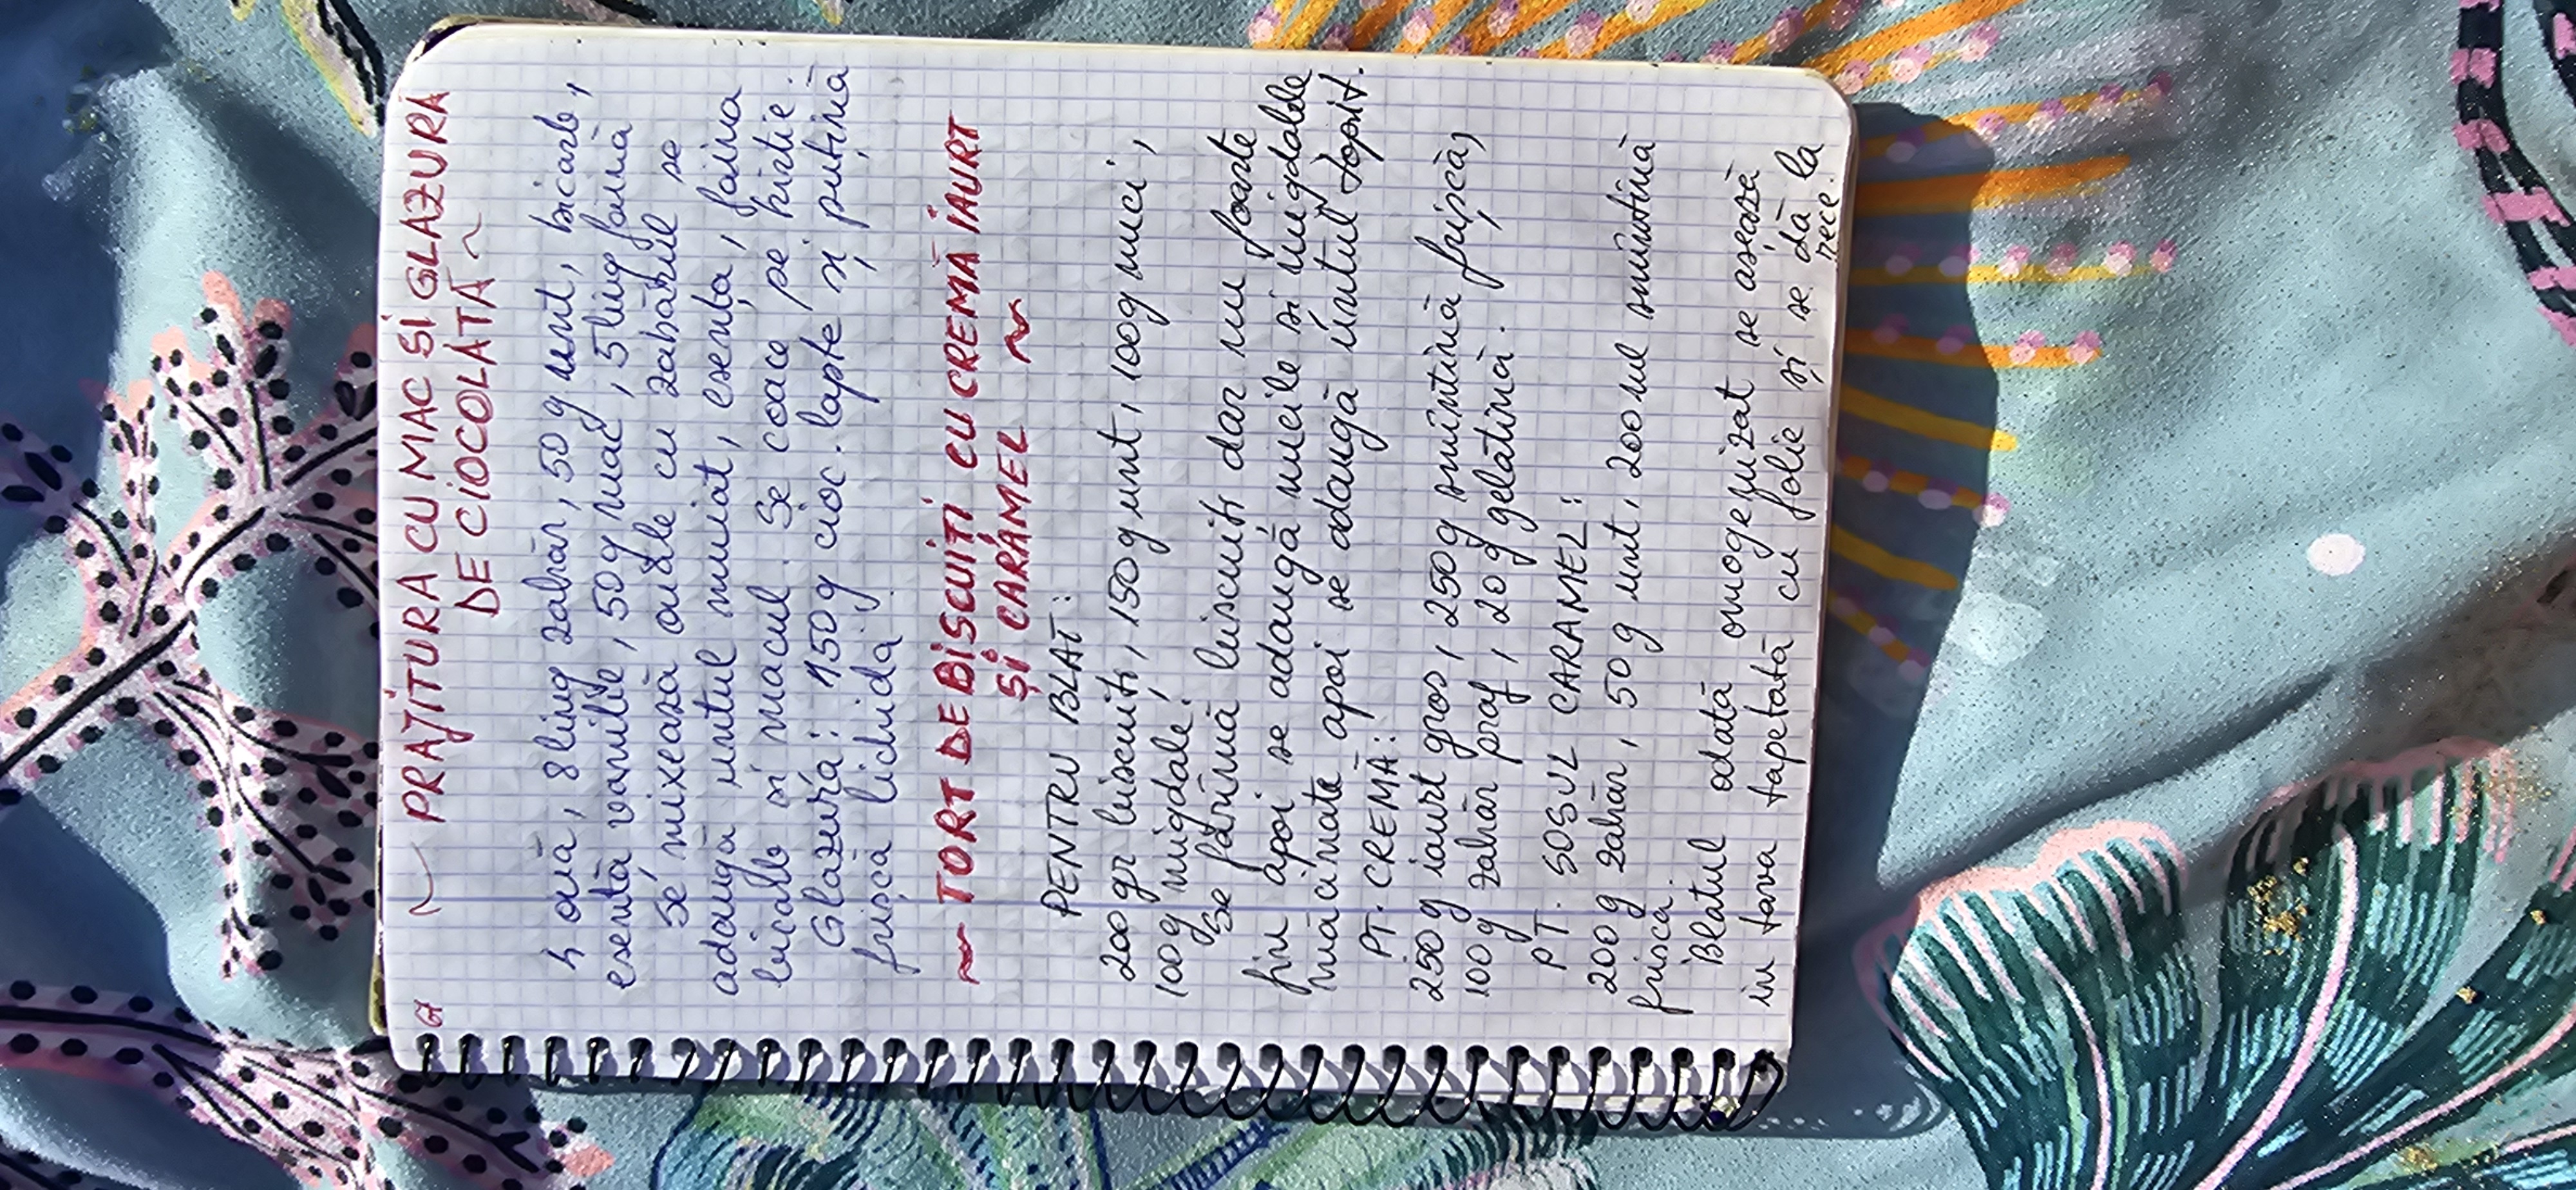 67 ~ PRAJITURA CU MAC SI GLAZURĂ
DE CIOCOLATĂ ~
4 ouă, 8 ling zahăr, 50 g unt, bicarb,
esență vanilie, 50 g mac, 5 ling făină
Se mixează ouăle cu zahărul se
adaugă untul muiat, esența, făina
bicarb și macul. Se coace pe hîrtie.
Glazură: 150 g cioc. lapte și puțină
frișcă lichidă.
~ TORT DE BISCUIȚI CU CREMĂ IAURT
ȘI CARAMEL ~
PENTRU BLAT:
200 gr biscuiți, 150 g unt, 100 g nuci,
100 g migdale!
Se fărîmă biscuiți dar nu foarte
fin apoi se adaugă nucile și migdalele
măcinate apoi se adaugă untul topit.
PT. CREMĂ:
250 g iaurt gros, 250 g smîntînă frișcă,
100 g zahăr praf, 20 g gelatină.
PT. SOSUL CARAMEL:
200 g zahăr, 50 g unt, 200 ml smîntînă
frișcă.
Blatul odată omogenizat se așează
in tava tapetată cu folie și se dă la
rece.